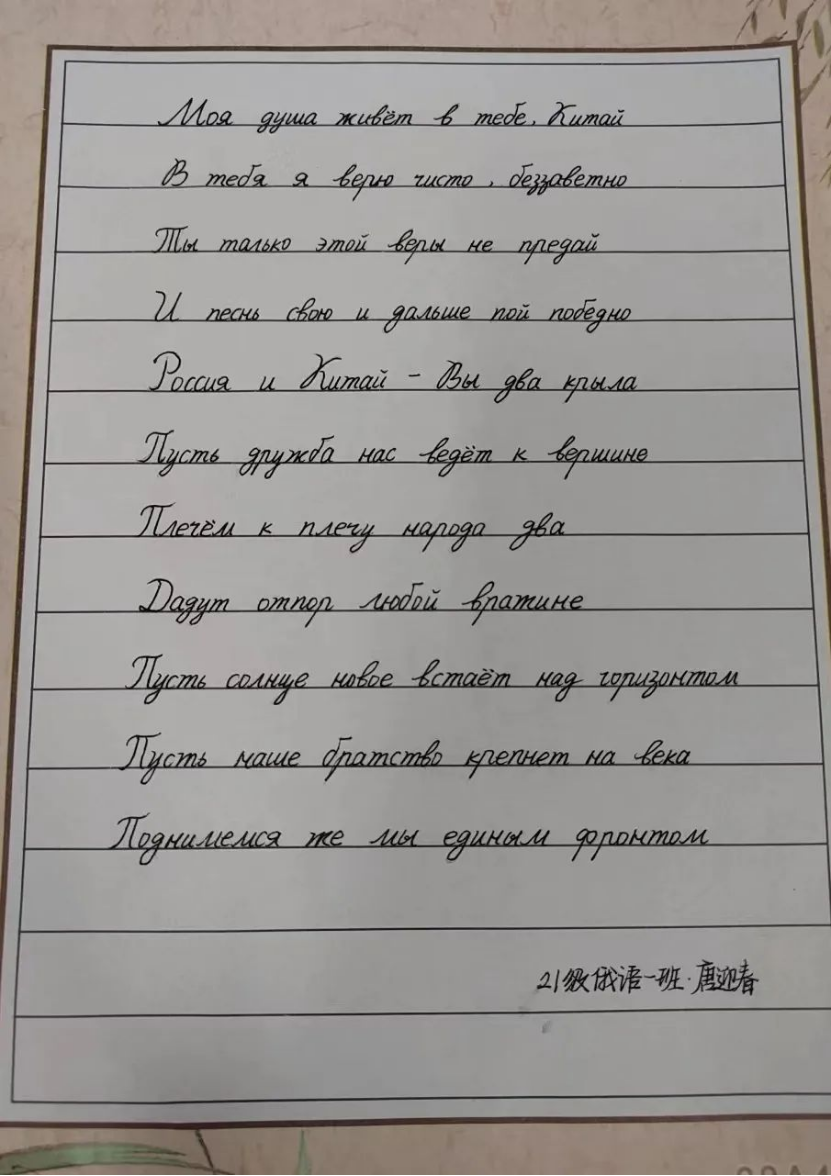 Моя душа живёт в тебе, Китай
В тебя я верю чисто, беззаветно
Ты только этой веры не предай
И песнь свою и дальше пой победно
Россия и Китай - Вы два крыла
Пусть дружба нас ведёт к вершине
Плечём к плечу народа два
Дадут отпор любой вражине
Пусть солнце новое встаёт над горизонтом
Пусть наше братство крепнет на века
Поднимемся же мы единым фронтом
21级俄语一班·唐迎春